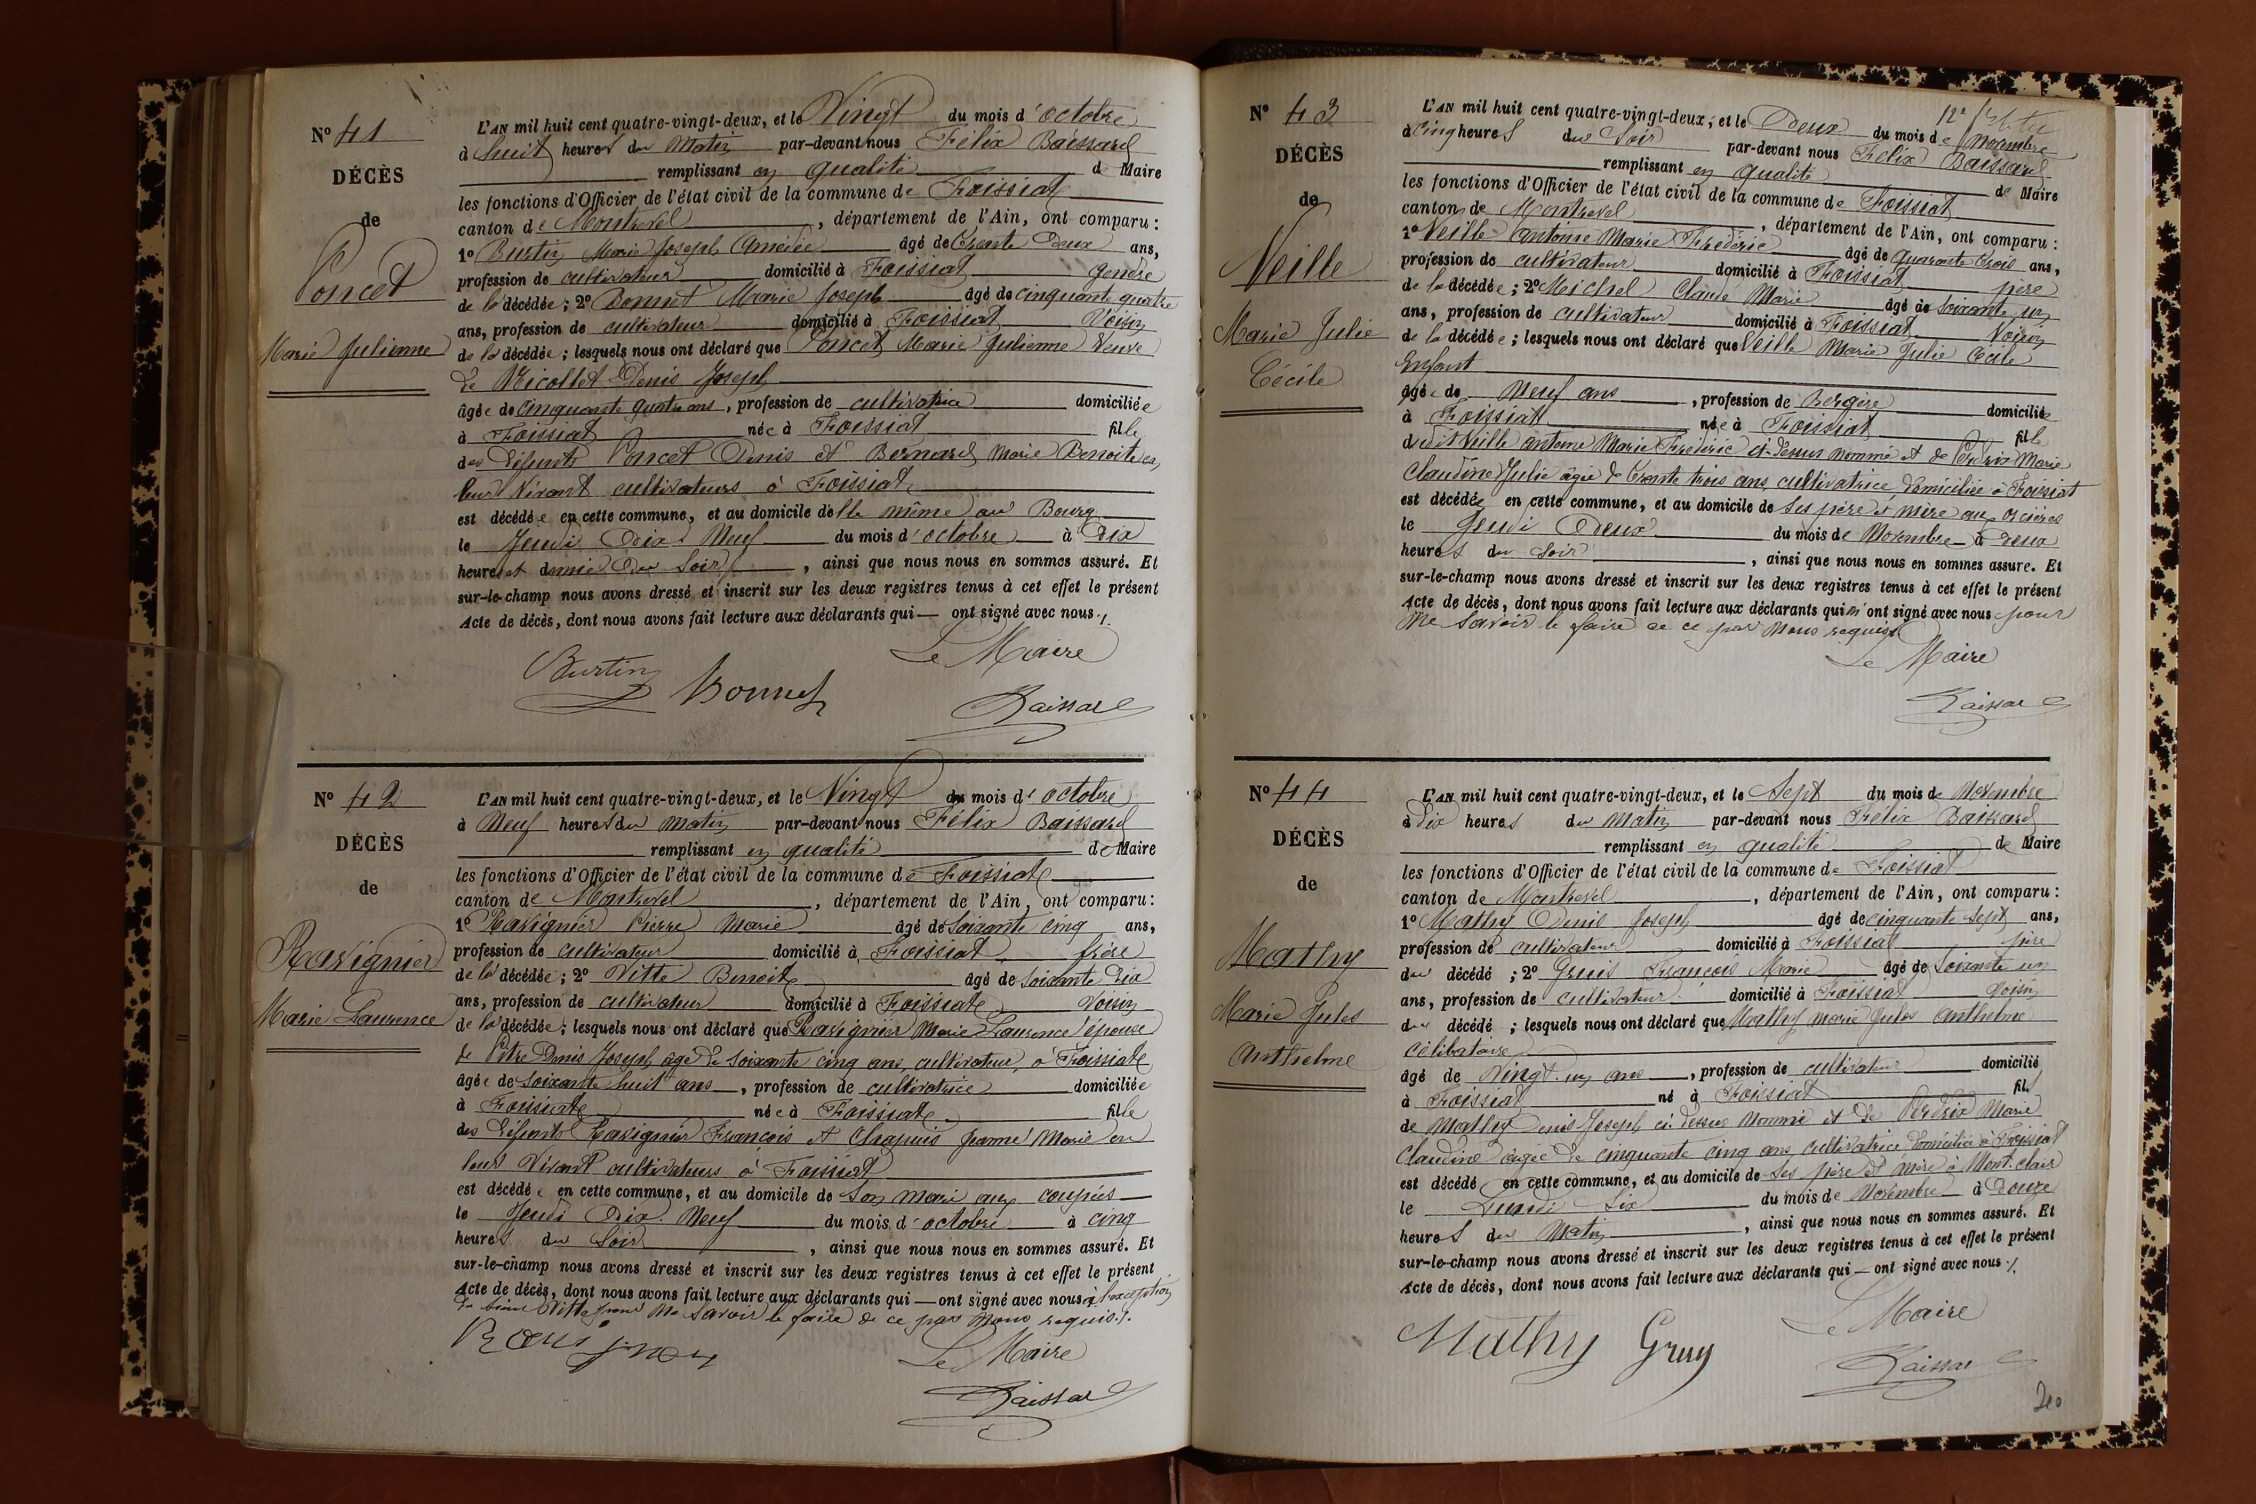 N° 41
DÉCÈS
de
Poncet
Marie Julienne
L'AN mil huit cent quatre-vingt-deux, et le Vingt du mois d'octobre
à huit heures du Matin par-devant nous Félix Baissard
remplissant en qualité de Maire
les fonctions d'Officier de l'état civil de la commune de Foissiat
canton de Montrevel, département de l'Ain, ont comparu :
1° Burtin Marie Joseph Amédée âgé de trente deux ans,
profession de cultivateur domicilié à Foissiat gendre
de la décédée ; 2° Donnet Marie Joseph âgé de cinquante quatre
ans, profession de cultivateur domicilié à Foissiat Voisin
de la décédée ; lesquels nous ont déclaré que Poncet Marie Julienne Veuve
de Nicollet Denis Joseph
âgée de cinquante quatre ans, profession de cultivatrice domiciliée
à Foissiat née à Foissiat fille
des défunts Poncet Denis et Bernard Marie Benoite en
leur vivant cultivateurs à Foissiat
est décédée en cette commune, et au domicile d'elle même au Bourg
le Jeudi Dix Neuf du mois d'octobre à Dix
heures et demie du Soir, ainsi que nous nous en sommes assuré. Et
sur-le-champ nous avons dressé et inscrit sur les deux registres tenus à cet effet le présent
Acte de décès, dont nous avons fait lecture aux déclarants qui — ont signé avec nous ./.
Le Maire
Burtin Bonnet Baissard
N° 42
DÉCÈS
de
Ravignier
Marie Laurence
L'AN mil huit cent quatre-vingt-deux, et le Vingt du mois d'octobre
à Neuf heures du matin par-devant nous Félix Baissard
remplissant en qualité de Maire
les fonctions d'Officier de l'état civil de la commune de Foissiat
canton de Montrevel, département de l'Ain, ont comparu :
1° Ravignier Pierre Marie âgé de soixante cinq ans,
profession de cultivateur domicilié à Foissiat frère
de la décédée ; 2° Vitte Benoit âgé de soixante dix
ans, profession de cultivateur domicilié à Foissiat Voisin
de la décédée ; lesquels nous ont déclaré que Ravignier Marie Laurence épouse
de Pitre Denis Joseph âgé de soixante cinq ans, cultivateur, à Foissiat
âgée de soixante huit ans, profession de cultivatrice domiciliée
à Foissiat née à Foissiat fille
des défunts Ravignier François et Chapuis Jeanne Marie en
leur vivant cultivateurs à Foissiat
est décédée en cette commune, et au domicile de son mari aux coupées
le Jeudi Dix Neuf du mois d'octobre à cinq
heures du Soir, ainsi que nous nous en sommes assuré. Et
sur-le-champ nous avons dressé et inscrit sur les deux registres tenus à cet effet le présent
Acte de décès, dont nous avons fait lecture aux déclarants qui — ont signé avec nous à l'exception
du sieur Vitte pour ne savoir le faire de ce par nous requis ./.
Le Maire
Baissard
N° 43
DÉCÈS
de
Veille
Marie Julie
Cécile
L'AN mil huit cent quatre-vingt-deux, et le Deux du mois de Novembre
à cinq heures du Soir par-devant nous Félix Baissard
remplissant en qualité de Maire
les fonctions d'Officier de l'état civil de la commune de Foissiat
canton de Montrevel, département de l'Ain, ont comparu :
1° Veille Antoine Marie Frédéric âgé de quarante trois ans,
profession de cultivateur domicilié à Foissiat père
de la décédée ; 2° Michel Claude Marie âgé de soixante un
ans, profession de cultivateur domicilié à Foissiat Voisin
de la décédée ; lesquels nous ont déclaré que Veille Marie Julie Cécile
Enfant
âgée de Neuf ans, profession de Bergère domiciliée
à Foissiat née à Foissiat fille
dudit Veille Antoine Marie Frédéric ci-dessus nommé et de Perdrix Marie
Claudine Julie âgée de trente trois ans cultivatrice, domiciliée à Foissiat
est décédée en cette commune, et au domicile de ses père et mère aux
le Jeudi Deux du mois de Novembre à Deux
heures du Soir, ainsi que nous nous en sommes assuré. Et
sur-le-champ nous avons dressé et inscrit sur les deux registres tenus à cet effet le présent
Acte de décès, dont nous avons fait lecture aux déclarants qui n'ont signé avec nous pour
ne savoir le faire de ce par nous requis
Le Maire
Baissard
N° 44
DÉCÈS
de
Mathy
Marie Jules
Anthelme
L'AN mil huit cent quatre-vingt-deux, et le Sept du mois de Novembre
à Dix heures du Matin par-devant nous Félix Baissard
remplissant en qualité de Maire
les fonctions d'Officier de l'état civil de la commune de Foissiat
canton de Montrevel, département de l'Ain, ont comparu :
1° Mathy Denis Joseph âgé de cinquante sept ans,
profession de cultivateur domicilié à Foissiat père
du décédé ; 2° Gruis François Marie âgé de soixante un
ans, profession de cultivateur domicilié à Foissiat Voisin
du décédé ; lesquels nous ont déclaré que Mathy Marie Jules Anthelme
célibataire
âgé de vingt un ans, profession de cultivateur domicilié
à Foissiat né à Foissiat fils
de Mathy Denis Joseph ci dessus nommé et de Perdrix Marie
Claudine âgée de cinquante cinq ans cultivatrice, domiciliée à Foissiat
est décédé en cette commune, et au domicile de ses père et mère à Mont-clair
le Lundi Six du mois de Novembre à Douze
heures du Matin, ainsi que nous nous en sommes assuré. Et
sur-le-champ nous avons dressé et inscrit sur les deux registres tenus à cet effet le présent
Acte de décès, dont nous avons fait lecture aux déclarants qui — ont signé avec nous ./.
Le Maire
Mathy Gruy Baissard